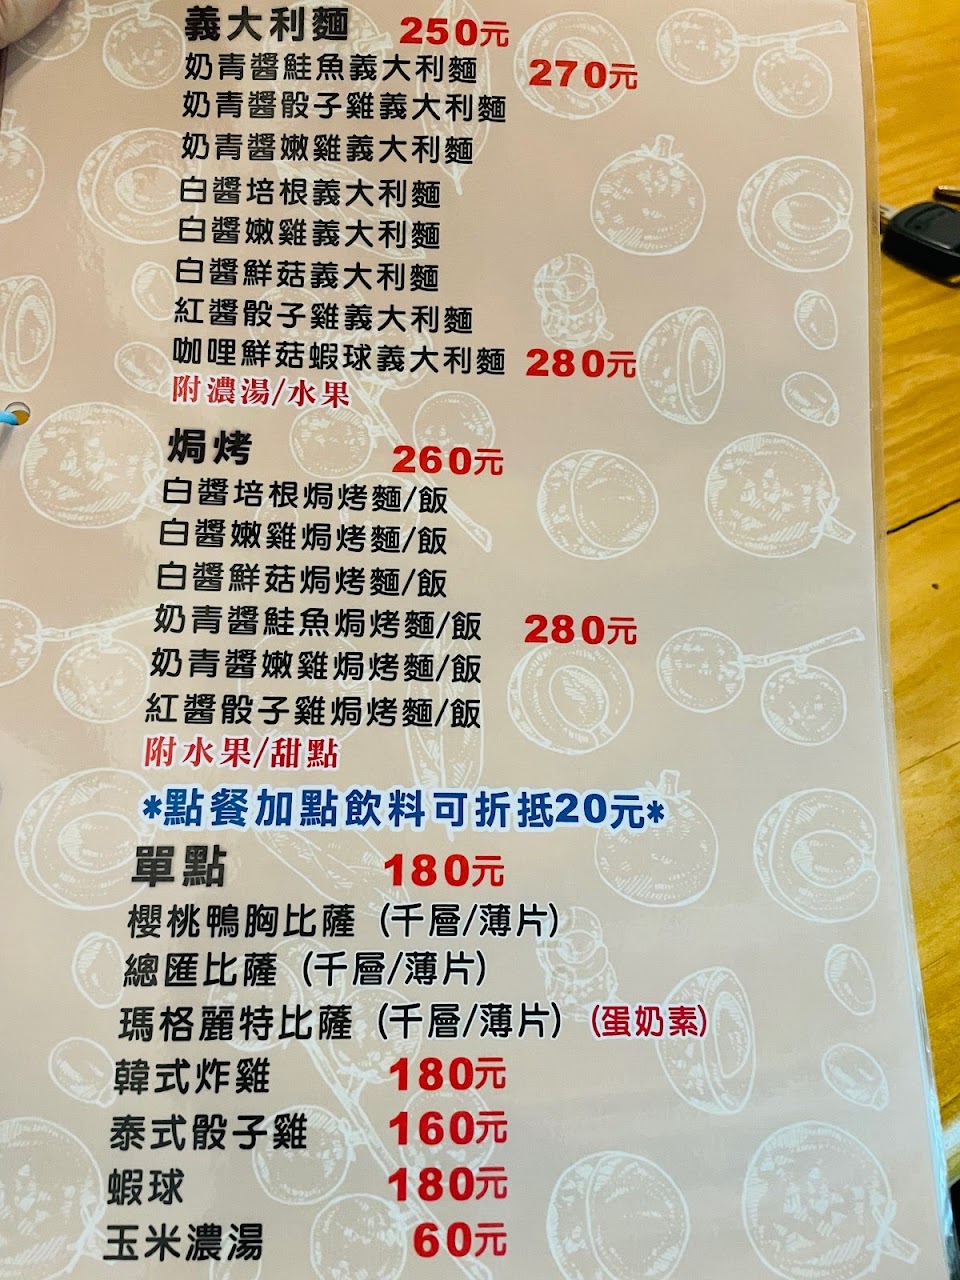 義大利麵 250元
奶青醬鮭魚義大利麵 270元
奶青醬骰子雞義大利麵
奶青醬嫩雞義大利麵
白醬培根義大利麵
白醬嫩雞義大利麵
白醬鮮菇義大利麵
紅醬骰子雞義大利麵
咖哩鮮菇蝦球義大利麵 280元
附濃湯/水果
焗烤 260元
白醬培根焗烤麵/飯
白醬嫩雞焗烤麵/飯
白醬鮮菇焗烤麵/飯
奶青醬鮭魚焗烤麵/飯 280元
奶青醬嫩雞焗烤麵/飯
紅醬骰子雞焗烤麵/飯
附水果/甜點
*點餐加點飲料可折抵20元*
單點 180元
櫻桃鴨胸比薩 (千層/薄片)
總匯比薩 (千層/薄片)
瑪格麗特比薩 (千層/薄片) (蛋奶素)
韓式炸雞 180元
泰式骰子雞 160元
蝦球 180元
玉米濃湯 60元